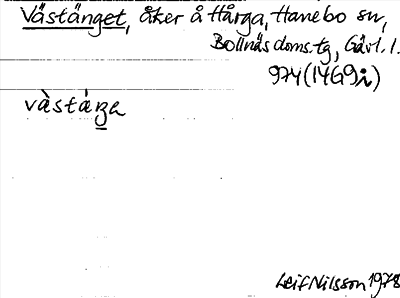 Västänget, åker å Hårga, Hanebo sn,
Bollnäs doms.tg, Gävl. l.
974 (14G9i)
Leif Nilsson 1978